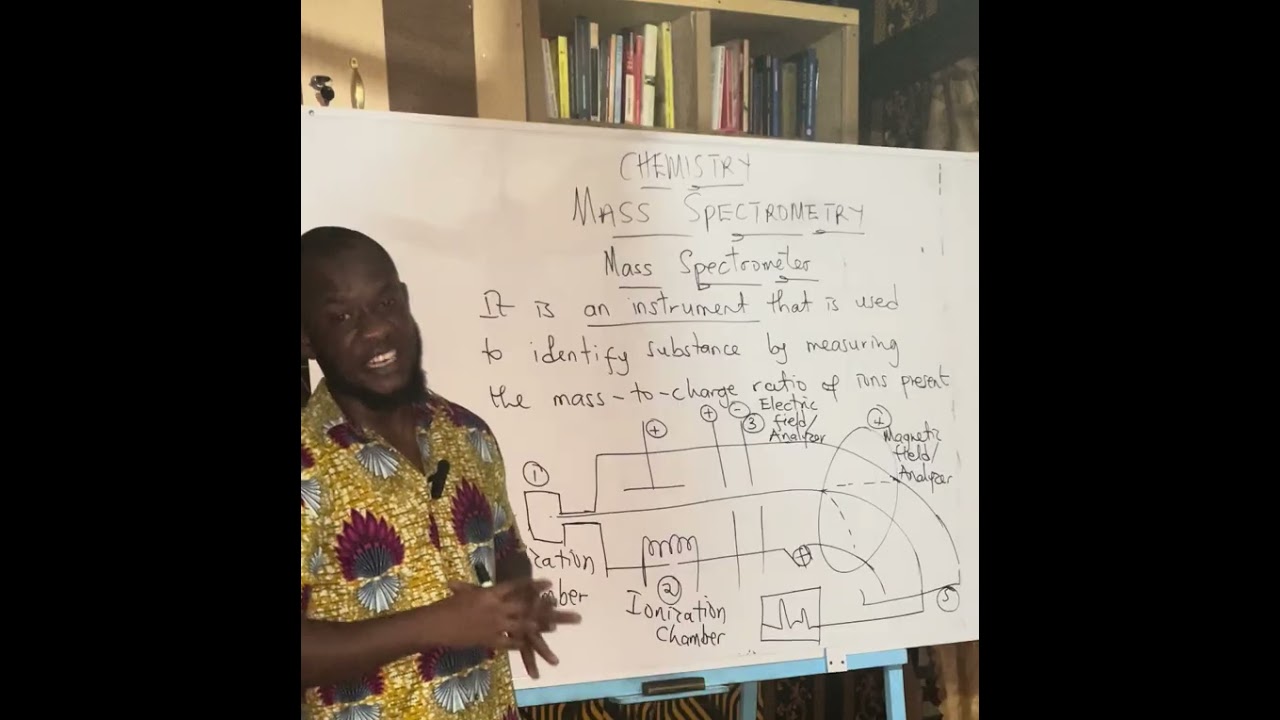 CHEMISTRY
MASS SPECTROMETRY
Mass Spectrometer
It is an instrument that is used
to identify substance by measuring
the mass-to-charge ratio of ions present
+
+
-
3
Electric
field/
Analyzer
4
Magnetic
field/
Analyzer
1
ization
mber
2
Ionization
Chamber
+
5